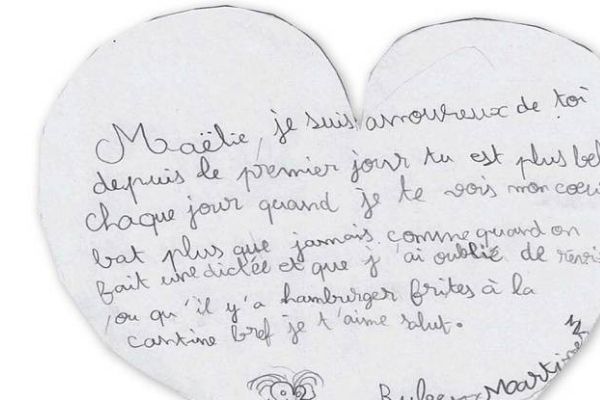 Maëlie, je suis amoureux de toi
depuis le premier jour tu est plus bel
chaque jour quand je te vois mon coeur
bat plus que jamais comme quand on
fait une dictée et que j'ai oublié de revis
ou qu'il y'a hamburger frites à la
cantine bref je t'aime salut.
Martinez